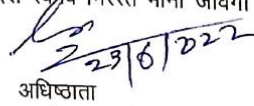 स्वमेव निरस्त माना जावेगा
23/6/2022
अधिष्ठाता